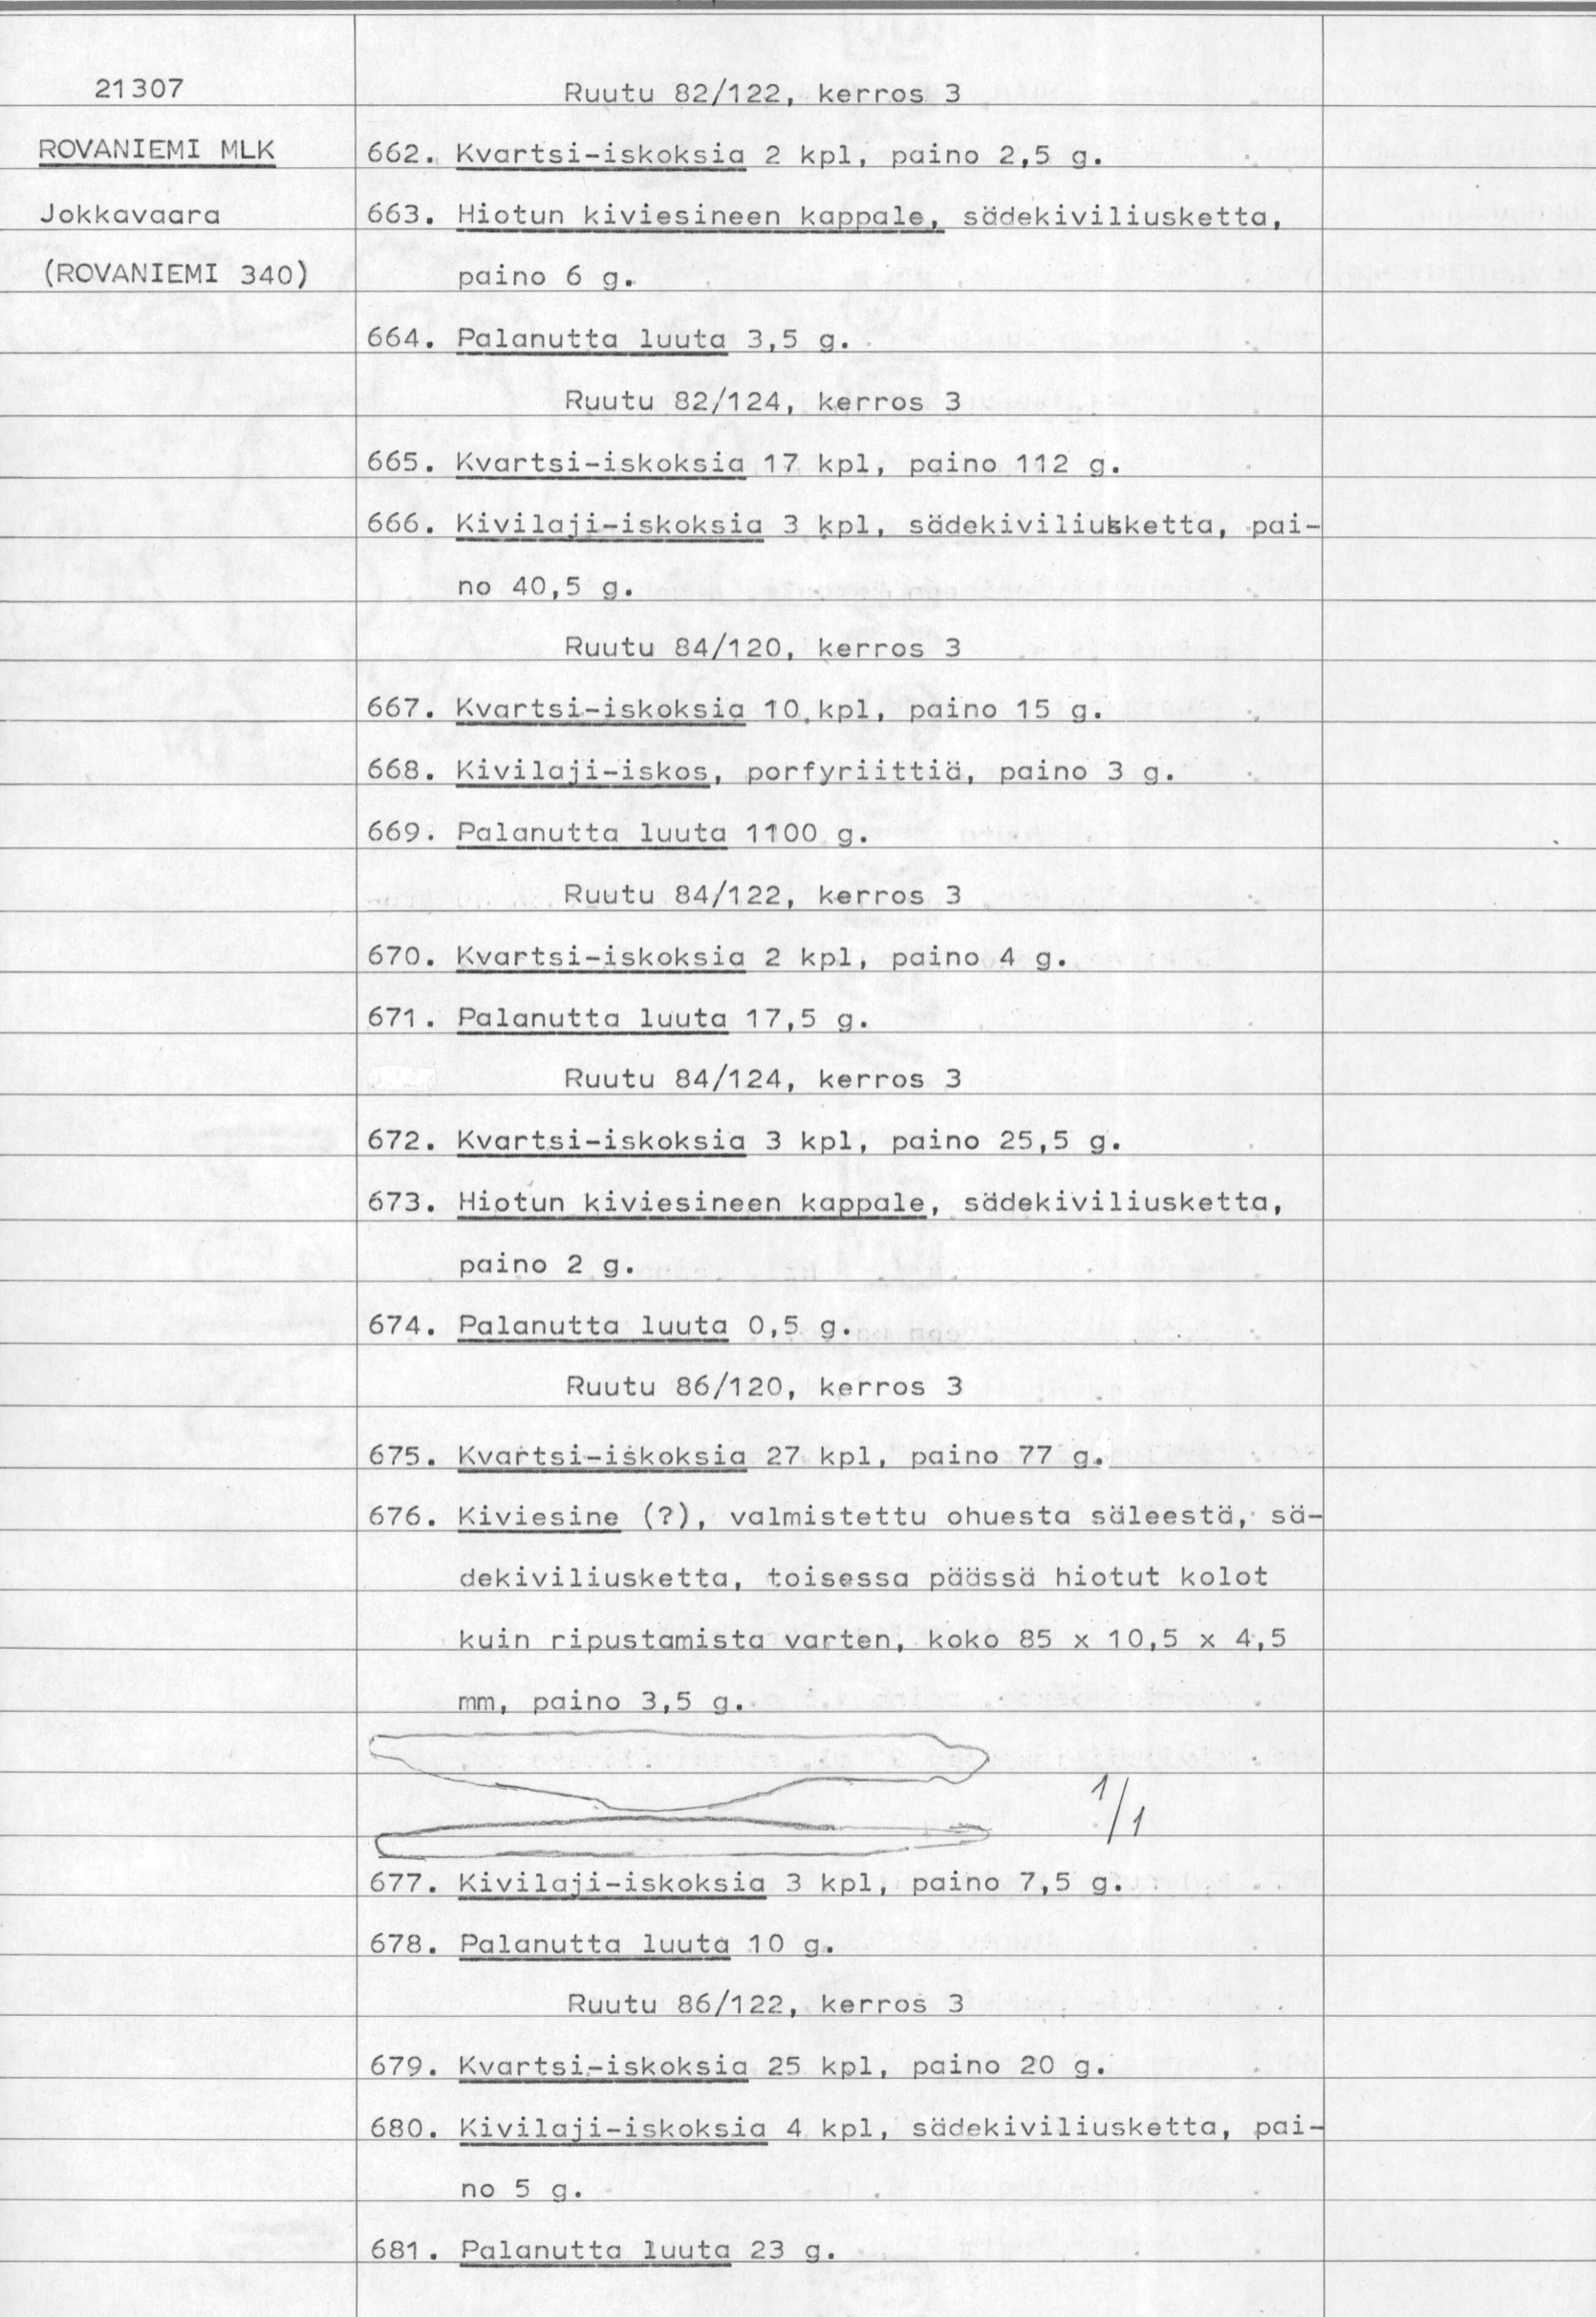 21307
ROVANIEMI MLK
Jokkavaara
(ROVANIEMI 340)
Ruutu 82/122, kerros 3
662. Kvartsi-iskoksia 2 kpl, paino 2,5 g.
663. Hiotun kiviesineen kappale, sädekiviliusketta,
paino 6 g.
664. Palanutta luuta 3,5 g.
Ruutu 82/124, kerros 3
665. Kvartsi-iskoksia 17 kpl, paino 112 g.
666. Kivilaji-iskoksia 3 kpl, sädekiviliusketta, pai-
no 40,5 g.
Ruutu 84/120, kerros 3
667. Kvartsi-iskoksia 10 kpl, paino 15 g.
668. Kivilaji-iskos, porfyriittiä, paino 3 g.
669. Palanutta luuta 1100 g.
Ruutu 84/122, kerros 3
670. Kvartsi-iskoksia 2 kpl, paino 4 g.
671. Palanutta luuta 17,5 g.
Ruutu 84/124, kerros 3
672. Kvartsi-iskoksia 3 kpl, paino 25,5 g.
673. Hiotun kiviesineen kappale, sädekiviliusketta,
paino 2 g.
674. Palanutta luuta 0,5 g.
Ruutu 86/120, kerros 3
675. Kvartsi-iskoksia 27 kpl, paino 77 g.
676. Kiviesine (?), valmistettu ohuesta säleestä, sä-
dekiviliusketta, toisessa päässä hiotut kolot
kuin ripustamista varten, koko 85 x 10,5 x 4,5
mm, paino 3,5 g.
1/1
677. Kivilaji-iskoksia 3 kpl, paino 7,5 g.
678. Palanutta luuta 10 g.
Ruutu 86/122, kerros 3
679. Kvartsi-iskoksia 25 kpl, paino 20 g.
680. Kivilaji-iskoksia 4 kpl, sädekiviliusketta, pai-
no 5 g.
681. Palanutta luuta 23 g.